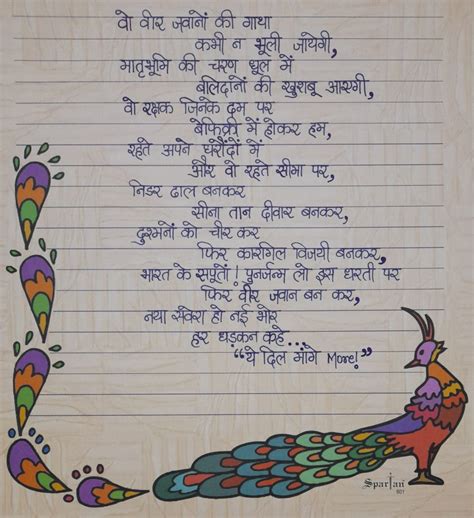 वो वीर जवानों की गाथा
कभी न भूली जायेगी,
मातृभूमि की चरण धूल में
बलिदानों की खुशबू आएगी,
वो रक्षक जिनके दम पर
बेफिक्री में होकर हम,
रहते अपने घरौंदों में
और वो रहते सीमा पर,
निडर ढाल बनकर
सीना तान दीवार बनकर,
दुश्मनों को चीर कर
फिर कारगिल विजयी बनकर,
भारत के सपूतों! पुनर्जन्म लो इस धरती पर
फिर वीर जवान बन कर,
नया सवेरा हो नई भोर
हर धड़कन कहे...
"ये दिल मांगे More!"
Spartan